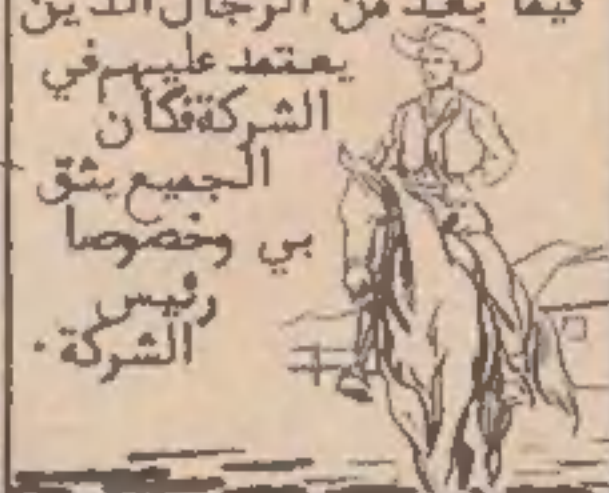 فيما بعد من الرجال الذين
يعتمد عليهم في
الشركة فكان
الجميع يثق
بي وخصوصا
رئيس
الشركة .